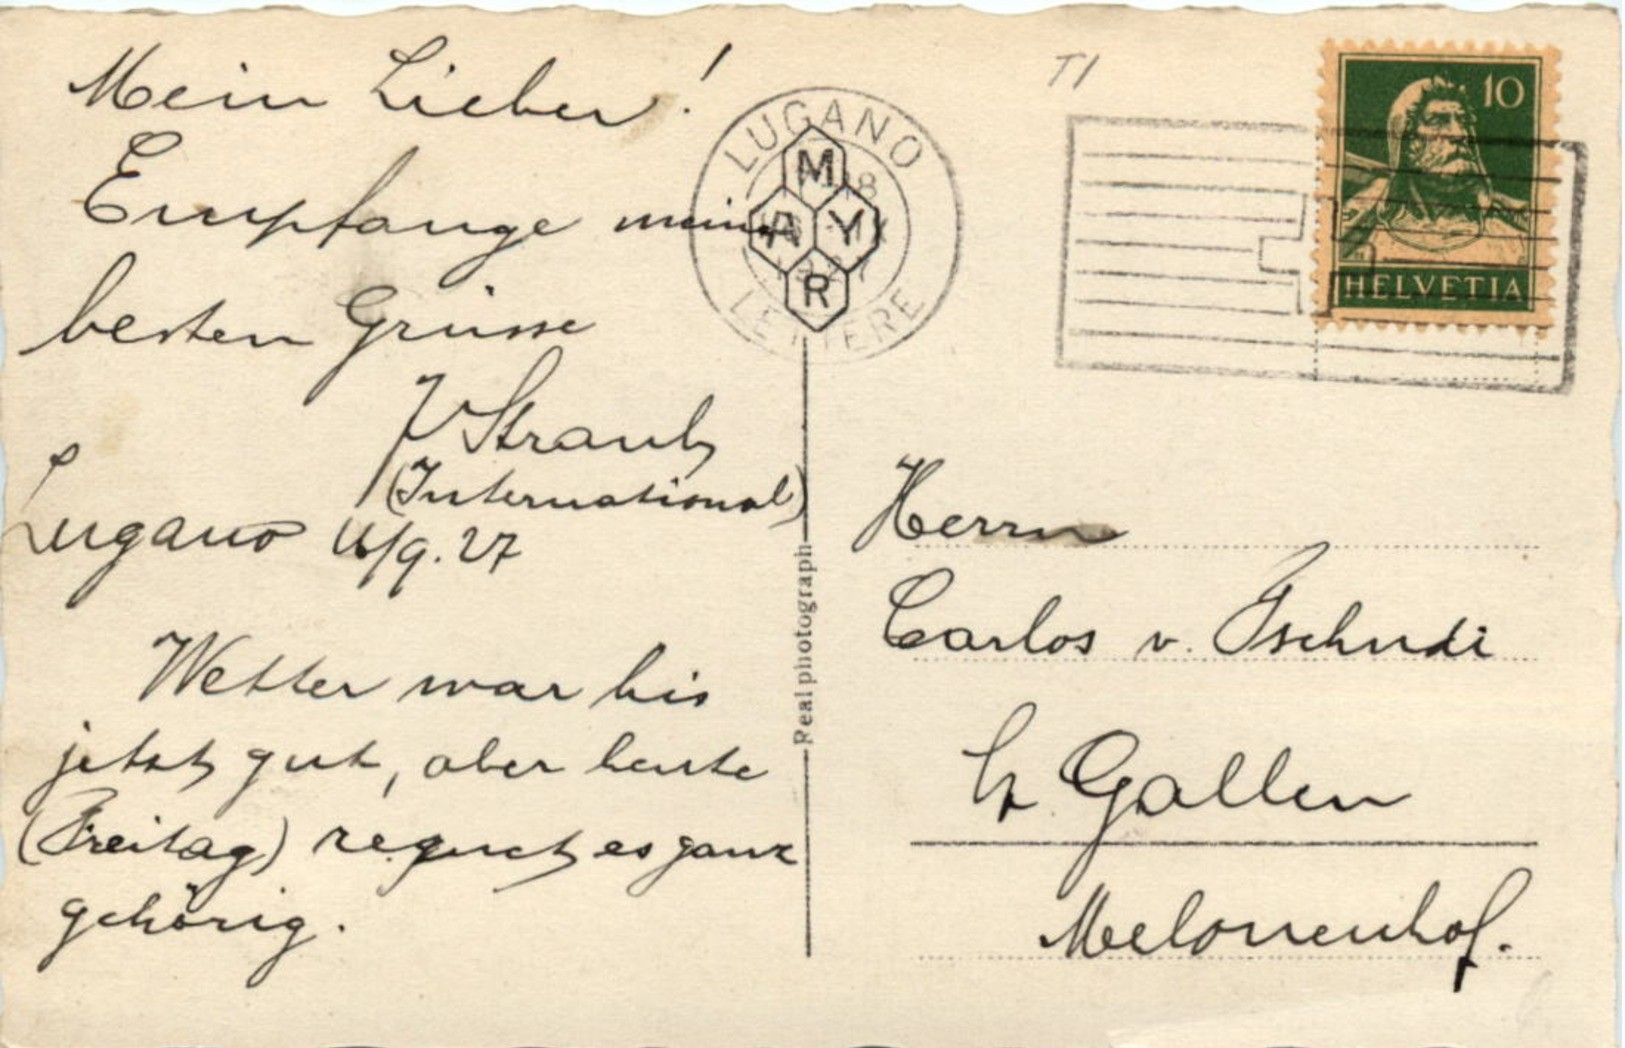 Mein Lieber!
Empfange meine
besten Grüsse
J Straub
(International)
Lugano 16/9.27
Wetter war bis
jetzt gut, aber heute
(Freitag) regnet es ganz
gehörig.
LUGANO
LETTERE
M
A Y
R
Real photograph
T1
10
HELVETIA
Herrn
Carlos v. Tschudi
St. Gallen
Melonenhof.